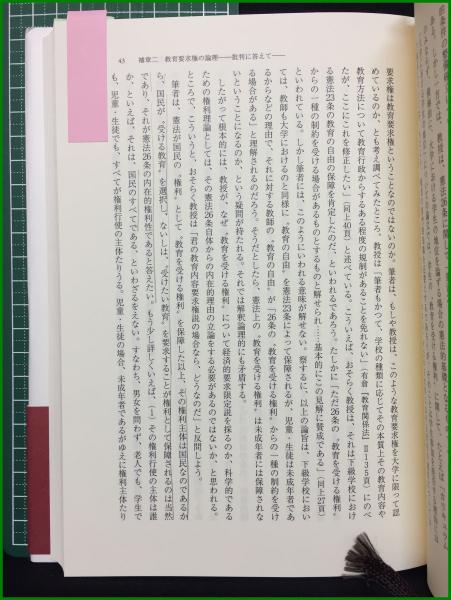 43　補章二　教育要求権の論理――批判に答えて――
要求権は教育要求権ということなのではないのか。筆者は、もしや教授は、このような教育要求権を大学に限って認
めているのか、とも考え調べてみたところ、教授は「筆者もかつて、学校の種類に応じてその本質上その教育内容や
教育方法について教育行政からするある程度の規制があることを免れない」(有倉『教育関係法』Ⅱ135頁)とのべ
たが、ここにこれを修正したい」(同上40頁)と述べている。こういえば、おそらく教授は、それは下級学校におけ
る憲法23条の教育の自由の保障を肯定したのだ、といわれるであろう。たしかに「ただ26条の〝教育を受ける権利〟
からの一種の制約を受ける場合があるものとするものと解せられ……基本的にこの見解に賛成である」(同上27頁)
といわれている。しかし筆者には、このようにいわれる意味が解せない。察するに、以上の論旨は、下級学校におい
ては、教師も大学におけるのと同様に〝教育の自由〟を憲法23条によって保障されるが、児童・生徒は未成年者であ
るからなどの理由で、それに対する教師の〝教育の自由〟が「26条の〝教育を受ける権利〟からの一種の制約を受け
る場合がある」と理解されるのだろう。そうだとしたら、憲法上の〝教育を受ける権利〟は未成年者には保障されな
いということになるのか、という疑問が持たれる。それでは解釈論理的にも矛盾する。
したがって根本的には、教授が、なぜ〝教育を受ける権利〟について経済的要求限定説を採るのか、科学的である
ための権利理論としては、その憲法26条自体からの内在的理由の立論をする必要があるのではないか、と思われる。
ところで、こういうと、おそらく教授は「君の教育内容要求権説の場合なら、どうなのだ」と反問しよう。
筆者は、憲法が国民の〝権利〟として〝教育を受ける権利〟を保障した以上、その権利主体は国民なのであるか
ら、国民が〝受ける教育〟を選択し、ないしは、〝受けたい教育〟を要求することが権利として保障されるのは当然
であり、それが憲法26条の内在的権利性であると答えたい。もう少し詳しくいえば、(1)その権利行使の主体は誰
か、といえば、それは、国民のすべてである、といわざるをえない。すなわち、男女を問わず、老人でも、学生で
も、児童・生徒でも、すべてが権利行使の主体たりうる。児童・生徒の場合、未成年者であるがゆえに権利主体たり